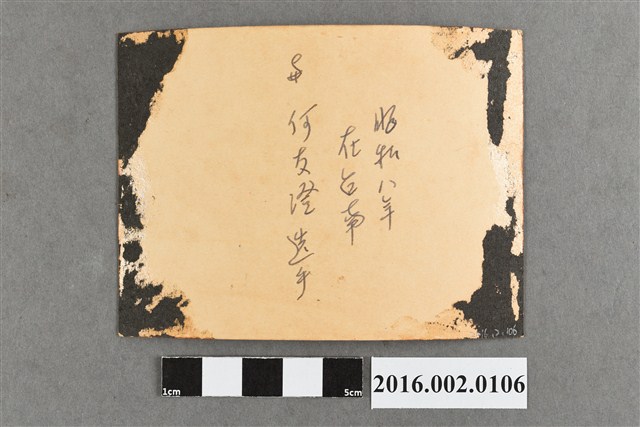 昭和八年
在台南
與 何友澄 選手
1cm
5cm
2016.002.0106